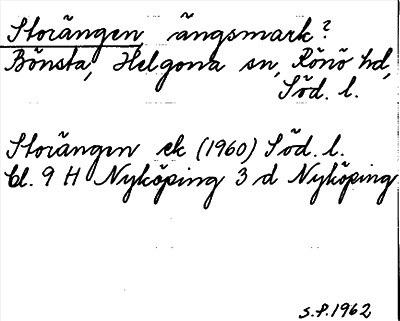 Storängen ängsmark?
Bönsta, Helgona sn, Rönö hd,
Söd. l.
Storängen ek (1960) Söd. l.
bl. 9 H Nyköping 3 d Nyköping
S.P. 1962